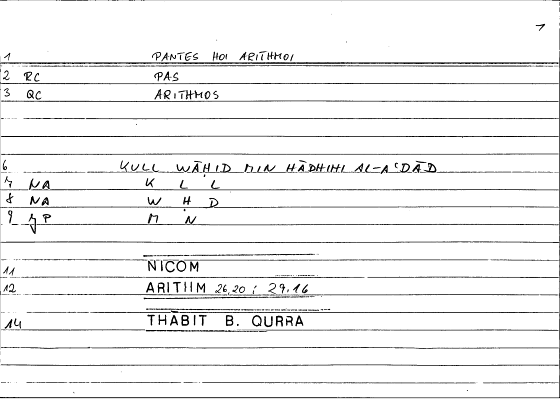 1
1 PANTES HOI ARITHMOI
2 RC PAS
3 QC ARITHMOS
6 KULL WĀHID MIN HĀDHIHI AL-AʿDĀD
7 NA K L L
8 NA W Ḥ D
9 P M N
11 NICOM
12 ARITHM 26,20 ; 29,16
14 THĀBIT B. QURRA